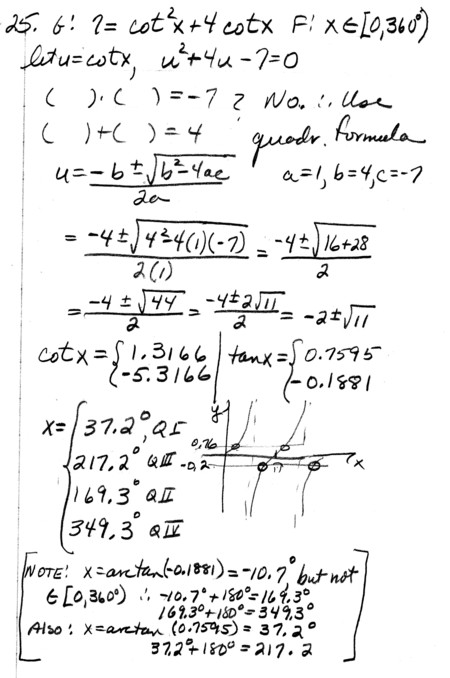 25. G: 7 = cot²x + 4 cotx F: x ∈ [0, 360°)
let u = cotx, u² + 4u - 7 = 0
( )·( ) = -7 ? No. ∴ Use
( ) + ( ) = 4 quadr. formula
u = (-b ± √(b² - 4ac))/2a a=1, b=4, c=-7
= (-4 ± √(4² - 4(1)(-7)))/2(1) = (-4 ± √(16+28))/2
= (-4 ± √44)/2 = (-4 ± 2√11)/2 = -2 ± √11
cot x = { 1.3166 | tan x = { 0.7595
-5.3166 | -0.1881
x = { 37.2°, QI
217.2° QIII
169.3° QII
349.3° QIV
y
0.76
-0.2
π
x
[NOTE: x = arctan(-0.1881) = -10.7° but not
∈ [0, 360°) ∴ -10.7° + 180° = 169.3°
169.3° + 180° = 349.3°
Also: x = arctan (0.7595) = 37.2°
37.2° + 180° = 217.2]